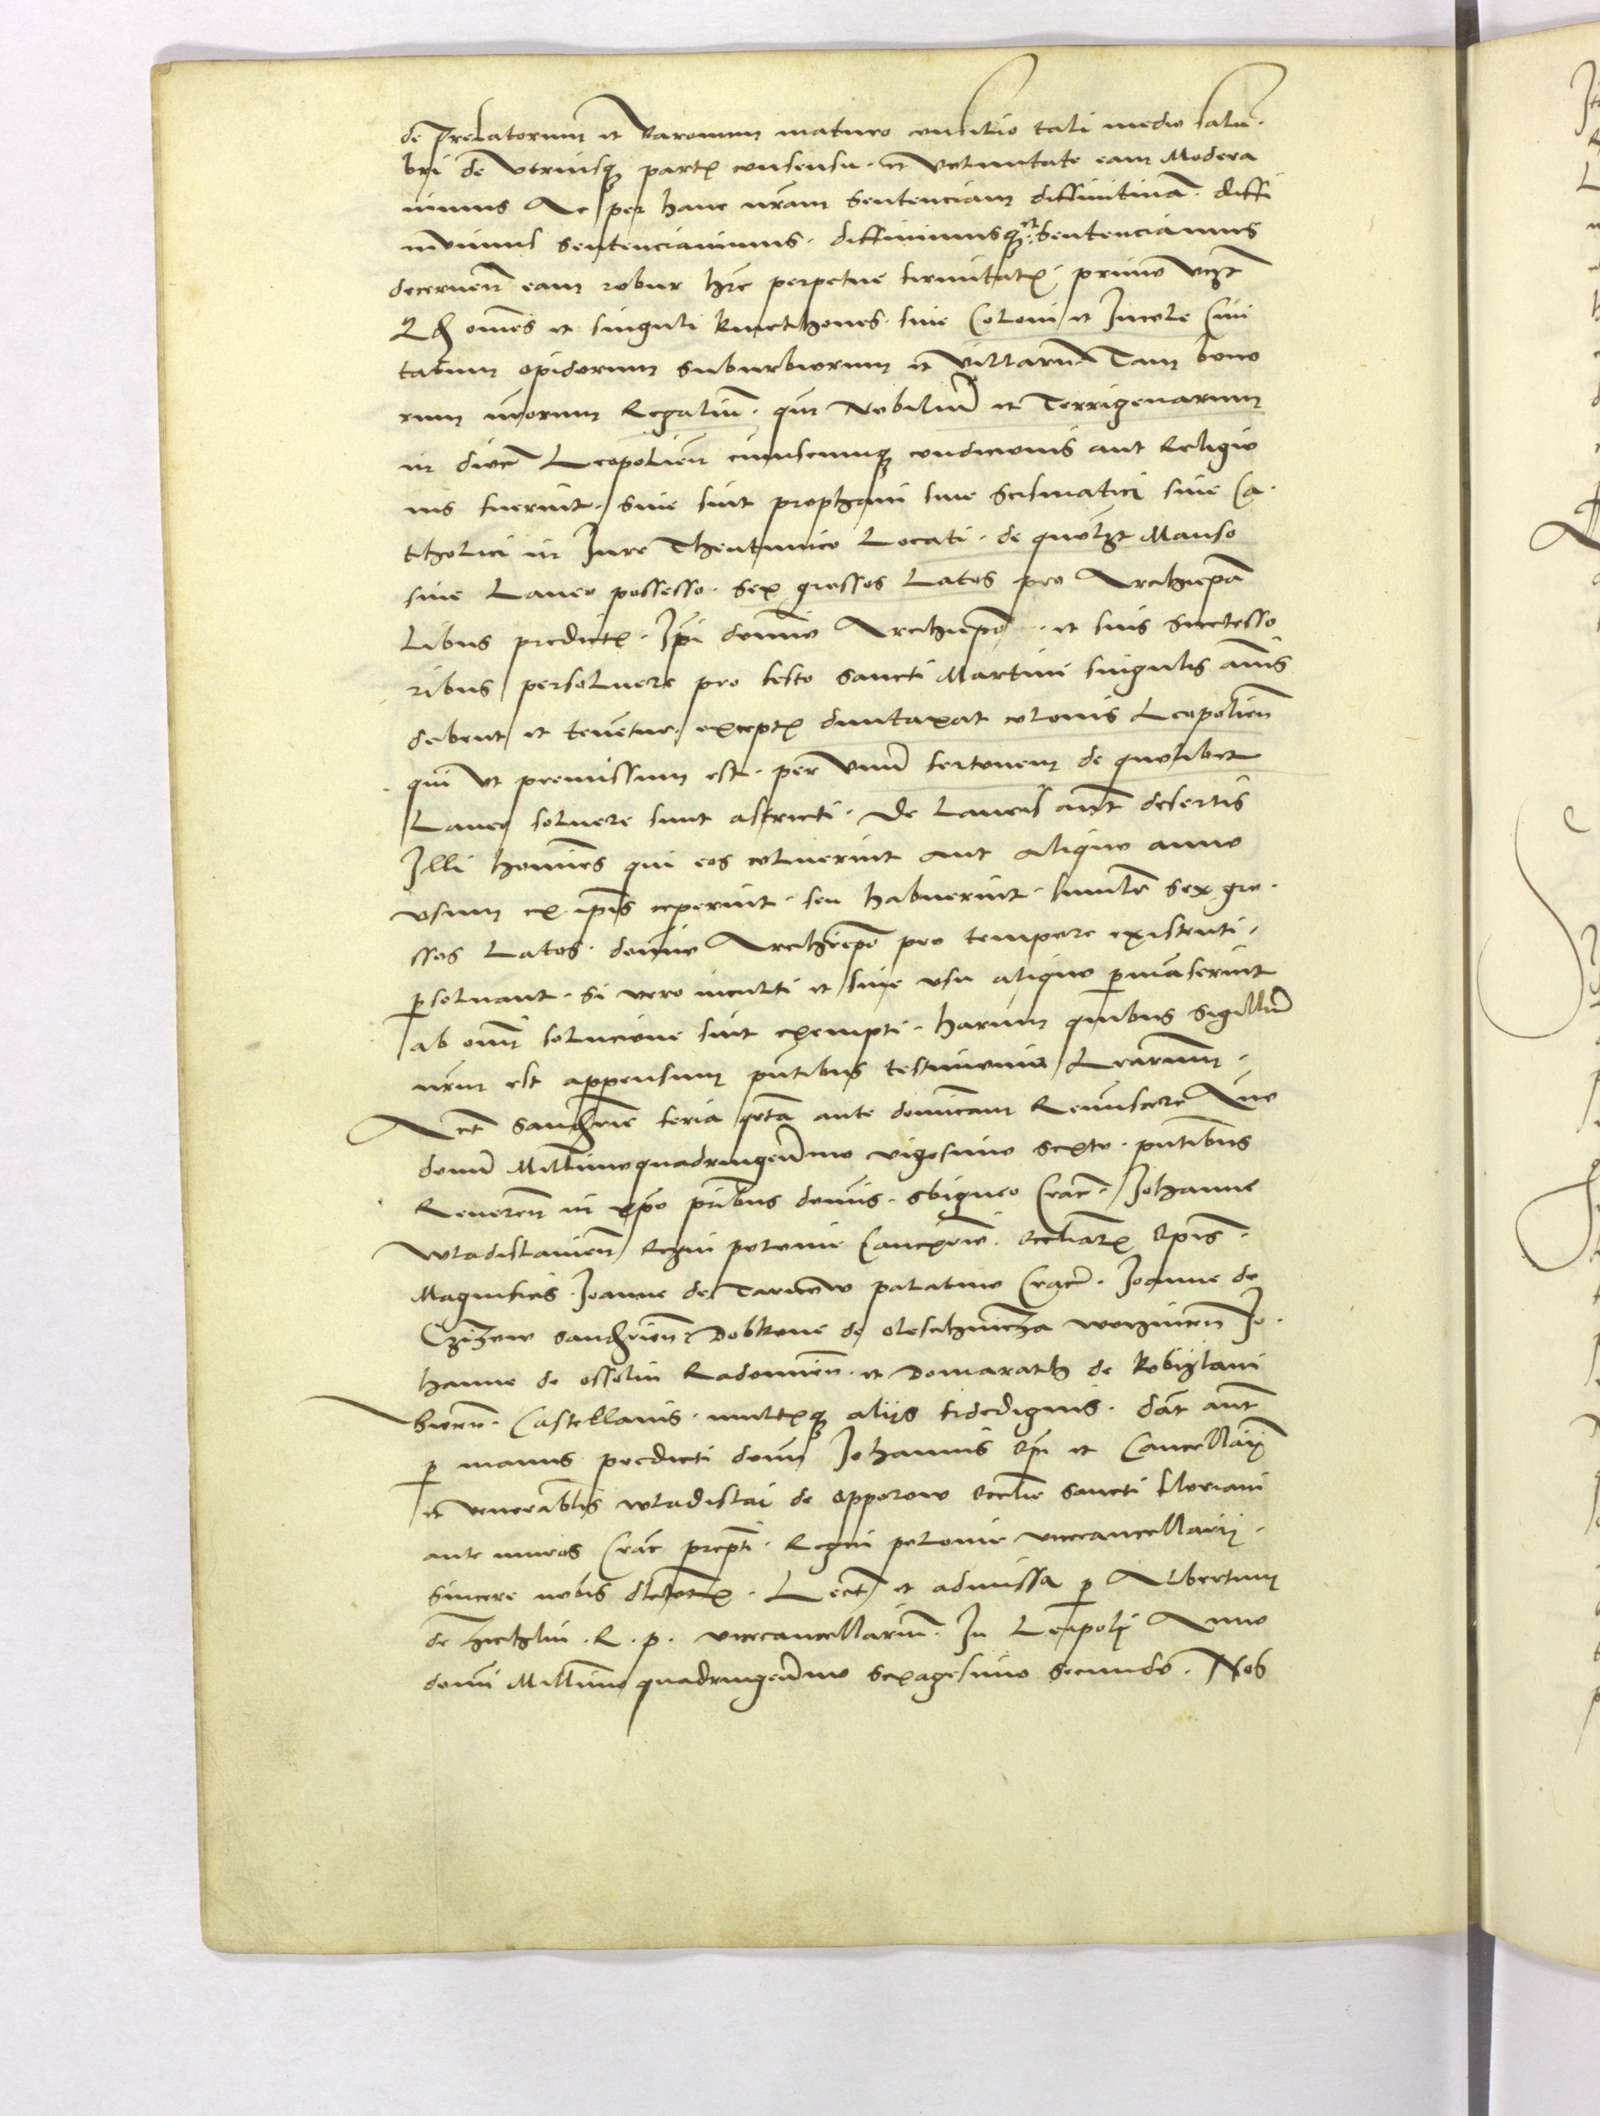 de Prelatorum et Baronum maturo consilio tali medio salu-
bri de utriusq3 partis consensu et voluntate eam Modera
nimus Ac per hanc nram sentenciam diffinitiua diffi
nivimus sentenciavimus diffinimusq3 et sentenciamus
decernen eam robur hre perpetue firmitatis primo vz
Qd omes et singuli kmethones siue Coloni et Incole Ciui
tatum opidorum suburbiorum et villaru Tam bono
rum nrorum Regaliu qm Nobiliu et Terrigenarum
in dioc Leopolien cuiuscumq3 condicionis aut Religio
nis fuerint siue sint prophani siue scismatici siue Ca-
tholici in Iure Theutunico Locati de quolzt Manso
siue Laneo possesso sex grossos Latos pro Archiepa
libus predictis Ipi domino Archiepo et suis successo
ribus persoluere pro festo sancti Martini singulis annis
debent et tenentur exceptis duntaxat colonis Leopolien
qui ut premissum est per Unu fertonem de quolibet
Laneo soluere sunt astricti De Laneis aut desertis
Illi homines qui eos coluerint aut aliquo anno
usum ex ipis ceperint seu habuerint similr sex gro-
ssos Latos domino Archiepo pro tempore existenti
psoluant Si vero inculti et sine usu aliquo pmaserint
ab omi solucione sint exempti harum quibus sigillu
nrm est appensum pntibus testimonio Lrarum
Act Sandomie feria qrta ante dominicam Reminiscere Ano
domi Millimoquadringentimo vigesimo sexto pntibus
Reueren in xpo pribus domis Sbigneo Crac Johanne
Wladislauien Regni polonie Cancellrio eccliarum Epis
Magnificis Joanne de Tarnow palatino Crac Joanne de
Czizow Sandomien Dobkone de oleschnicza woynicen Jo-
hanne de ossolin Radomien et Domarath de Kobylani
biecen Castellanis multisq3 alijs fidedignis dat aut
p manus predicti domi Johannis Epi et Cancellarij
et venerablis wladislai de opporow ecclie sancti floriani
ante muros Crac prepti Regni polonie vicecancellarij
sincere nobis dilectorum Lect et admissa p Albertum
de zichlin R. p. vicecancellarium In Leopoli Anno
domi Millimo quadringentimo sexagesimo secundo Nos